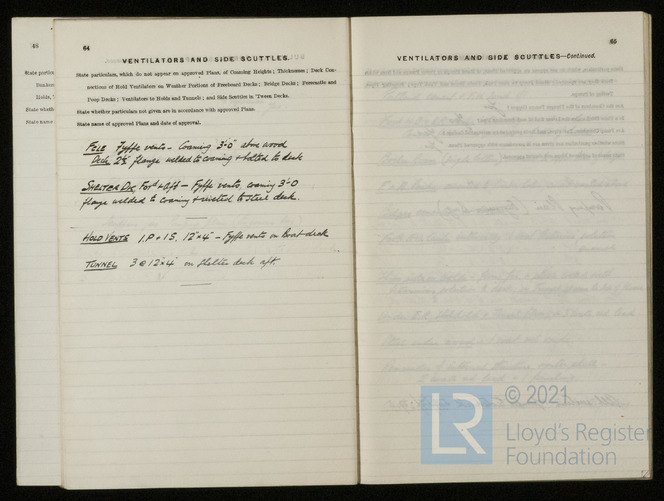 48
State
64
VENTILATORS AND SIDE SCUTTLES.
State particulars, which do not appear on approved Plans, of Coaming Heights; Thicknesses; Deck Con-
nections of Hold Ventilators on Weather Portions of Freeboard Decks; Bridge Decks; Forecastle and
Poop Decks; Ventilators to Holds and Tunnels; and Side Scuttles in 'Tween Decks.
State whether particulars not given are in accordance with approved Plans.
State name of approved Plans and date of approval.
Fyffe vents – Coaming 3'-0" abve wood
Deck flange welded to coaming + bolted to deck
SHELTER DK Ford & Aft – Fyffe vents, coaming 3'-0
flange welded to coaming & riveted to steel deck.
HOLD VENTS 1.P + 1 S. 12"x4" – Fyffe vents on Boat deck
TUNNEL 3 @ 12"x4" on shelter deck aft.
65
VENTILATORS AND SIDE SCUTTLES—Continued.
LR
© 2021
Lloyd's Register
Foundation